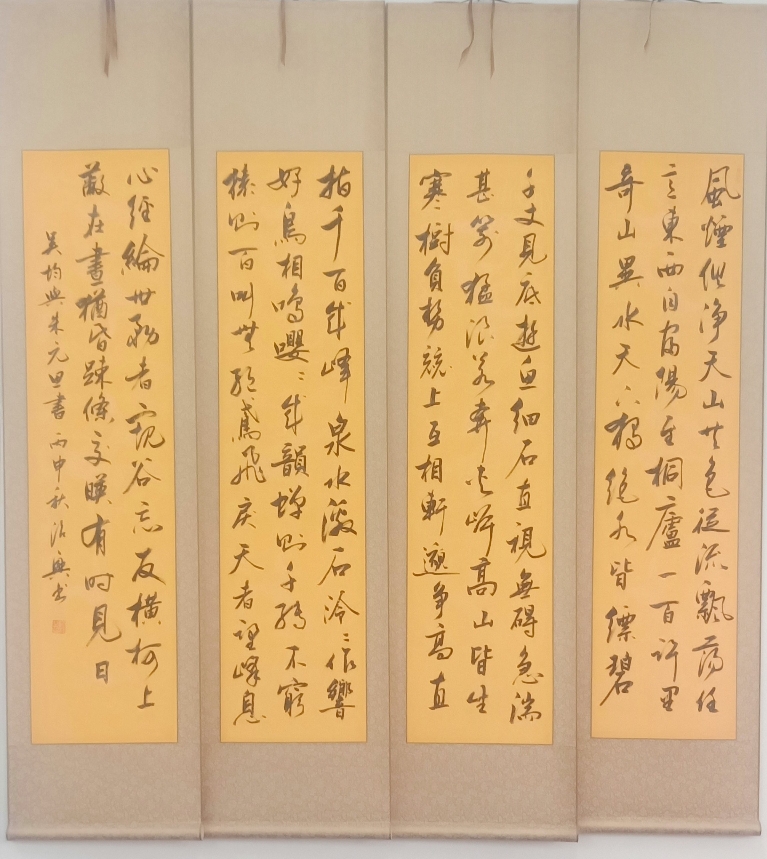 風煙俱淨天山共色從流飄蕩任
意東西自富陽至桐廬一百許里
奇山異水天下獨絕水皆縹碧
千丈見底遊魚細石直視無礙急湍
甚箭猛浪若奔夹岸高山皆生
寒樹負勢競上互相軒邈争高直
指千百成峰泉水激石泠泠作響
好鳥相鳴嚶嚶成韻蟬則千轉不窮
猿則百叫無絕鳶飛戾天者望峰息
心經綸世務者窺谷忘反橫柯上
蔽在晝猶昏疎條交映有时見日
吴均與朱元思書丙申秋治興书